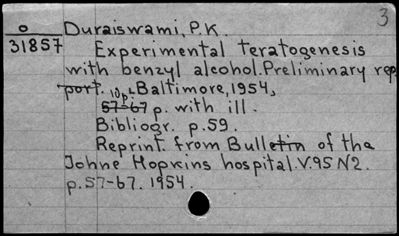 3
o Duraiswami, P.K.
31857 Experimental teratogenesis
with benzyl alcohol. Preliminary rep
port. Baltimore, 1954,
10p.
57-67 p. with ill.
Bibliogr. p.59.
Reprint from Bulletin of tha
Johne Hopkins hospital. V.95 N2.
p.57-67. 1954.